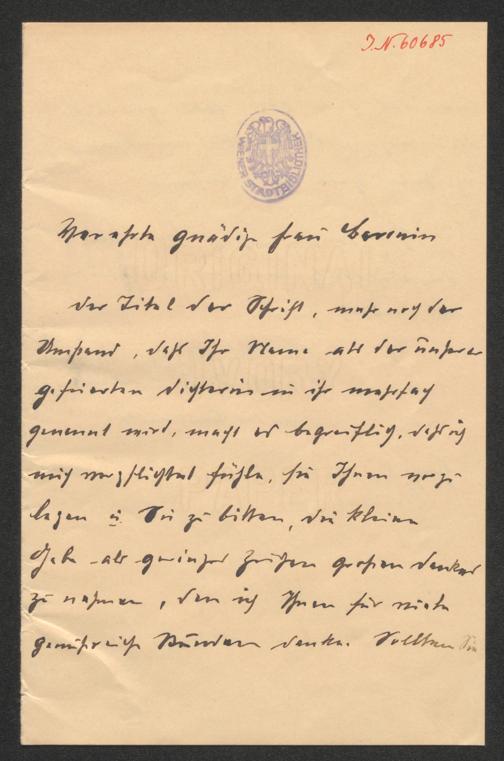 J.N. 60685
WIENER STADTBIBLIOTHEK
Verehrte gnädige Frau Baronin
Der Titel der Schrift, mehr noch der
Umstand, daß Ihr Name als der unserer
gefeierten Dichterin in ihr mehrfach
genannt wird, macht es begreiflich, daß ich
mich verpflichtet fühle, sie Ihnen vorzu
legen u. Sie zu bitten, die kleine
Gabe als geringes Zeichen großen Dankes
zu nehmen, den ich Ihnen für viele
genußreiche Stunden danke. Sollten Sie